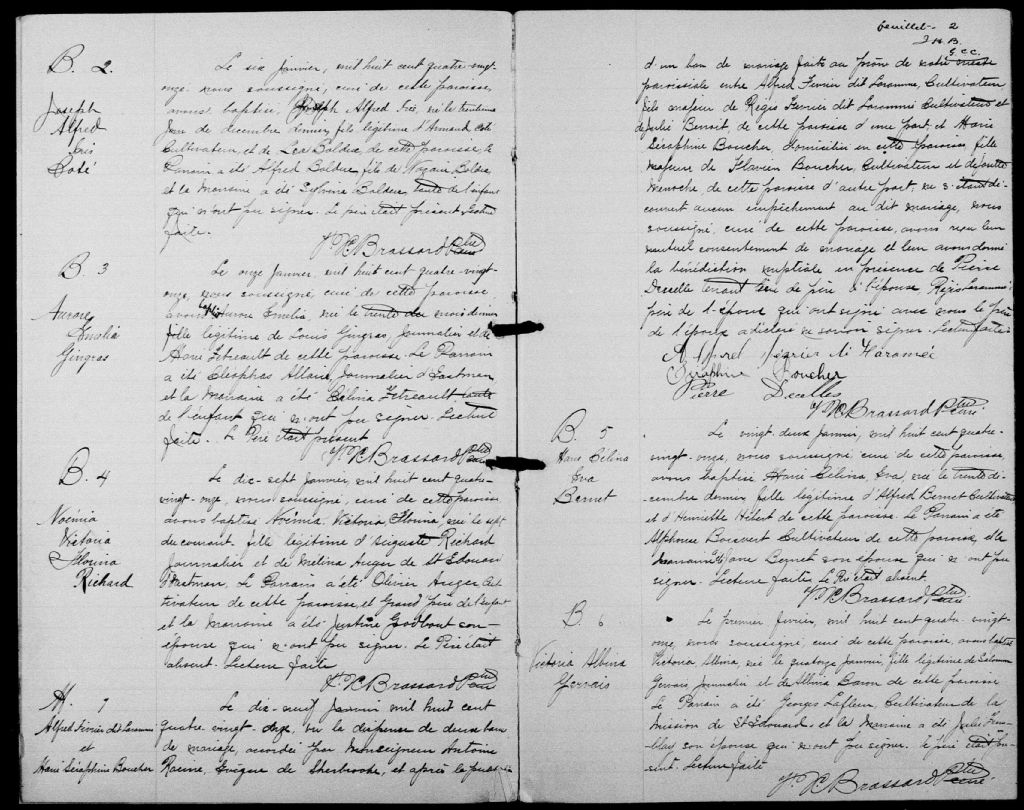 B. 2.
Joseph
Alfred
Côté
Le six Janvier, mil huit cent quatre-vingt-
onze nous soussigné, curé de cette paroisse,
avons baptisé Joseph Alfred né le trentième
jour de décembre dernier, fils légitime d'Armand Coté
Cultivateur, et de Léa Bolduc, de cette paroisse, le
Parrain a été Alfred Bolduc, fils de Nazaire Bolduc
et la Marraine a été Bolduc, tante de l'enfant
qui n'ont pu signer. Le père était présent Lecture
faite.
Brassard Ptre Curé
B. 3
Aurore
Emelia
Gingras
Le onze Janvier, mil huit cent quatre-vingt-
onze, nous soussigné, curé de cette paroisse
avons Aurore Emelia, née le trente du mois dernier
fille légitime de Louis Gingras, Journalier et de
Marie Tétreault de cette paroisse. Le Parrain
a été Cléophas Allaire, Journalier d'Eastman,
et la Marraine a été Célina Tétreault tante
de l'enfant qui n'ont pu signer. Lecture
faite. Le Père était présent
Brassard Ptre Curé
B. 4
Noémia
Victoria
Florina
Richard
Le dix-sept Janvier, mil huit cent quatre-
vingt-onze, nous soussigné, curé de cette paroisse
avons baptisé Noémia Victoria Florina, née le sept
du courant, fille légitime d'Auguste Richard
Journalier et de Melina Auger de St Edouard
d'Eastman, Le Parrain a été Olivier Auger, Cul-
tivateur de cette paroisse, et Grand père de l'enfant
et la Marraine a été Justine Godbout son
épouse qui n'ont pu signer. Le Père était
absent. Lecture faite
Brassard Ptre Curé
M. 1
Alfred Février dit Laramée
et
Marie Séraphine Boucher
Le dix-huit Janvier mil huit cent
quatre vingt onze, vu la dispense de deux bans
de mariage, accordée par Monseigneur Antoine
Racine, Evêque de Sherbrooke, et après la publication
feuillet 2
J. N. B.
G. C. C.
d'un ban de mariage faite au prône de notre messe
paroissiale entre Alfred Février dit Laramée, Cultivateur,
fils majeur de Régis Février dit Laramée Cultivateur et
de Julie Benoit, de cette paroisse d'une part, et Marie
Séraphine Boucher, domiciliée en cette paroisse, fille
majeure de Flavien Boucher, Cultivateur et de
de cette paroisse d'autre part, ne s'étant dé-
couvert aucun empêchement au dit mariage, nous
soussigné, curé de cette paroisse, avons reçu leur
mutuel consentement de mariage et leur avons donné
la bénédiction nuptiale en présence de Pierre
Decelle tenant lieu de père à l'épouse, Régis Laramée
père de l'époux qui ont signé avec nous le père
de l'époux a déclaré ne savoir signer. Lecture faite.
Alfred Février di Laramée
Séraphine Boucher
Pierre Decelles
Brassard Ptre Curé
B. 5
Marie Célina
Eva
Bernet
Le vingt-deux Janvier, mil huit cent quatre-
vingt-onze, nous soussigné curé de cette paroisse,
avons baptisé Marie Célina, Eva, née le trente dé-
cembre dernier, fille légitime d'Alfred Bernet Cultivateur
et d'Henriette Hébert de cette paroisse. Le Parrain a été
Alphonse Boisvert Cultivateur de cette paroisse, et la
Marraine Marie Bernet son épouse qui n'ont pu
signer. Lecture faite. Le Père était absent.
Brassard Ptre Curé
B. 6
Victoria Albina
Gervais
Le premier février, mil huit cent quatre-vingt-
onze, nous soussigné, curé de cette paroisse, avons baptisé
Victoria, Albina, née le quatorze Janvier, fille légitime de Salomon
Gervais Journalier et de Albina Baron de cette paroisse
Le Parrain a été Georges Lafleur, Cultivateur de la
mission de St Edouard et la Marraine a été Julie Trem-
blay son épouse qui n'ont pu signer. Le père était pré-
sent. Lecture faite
Brassard Ptre Curé